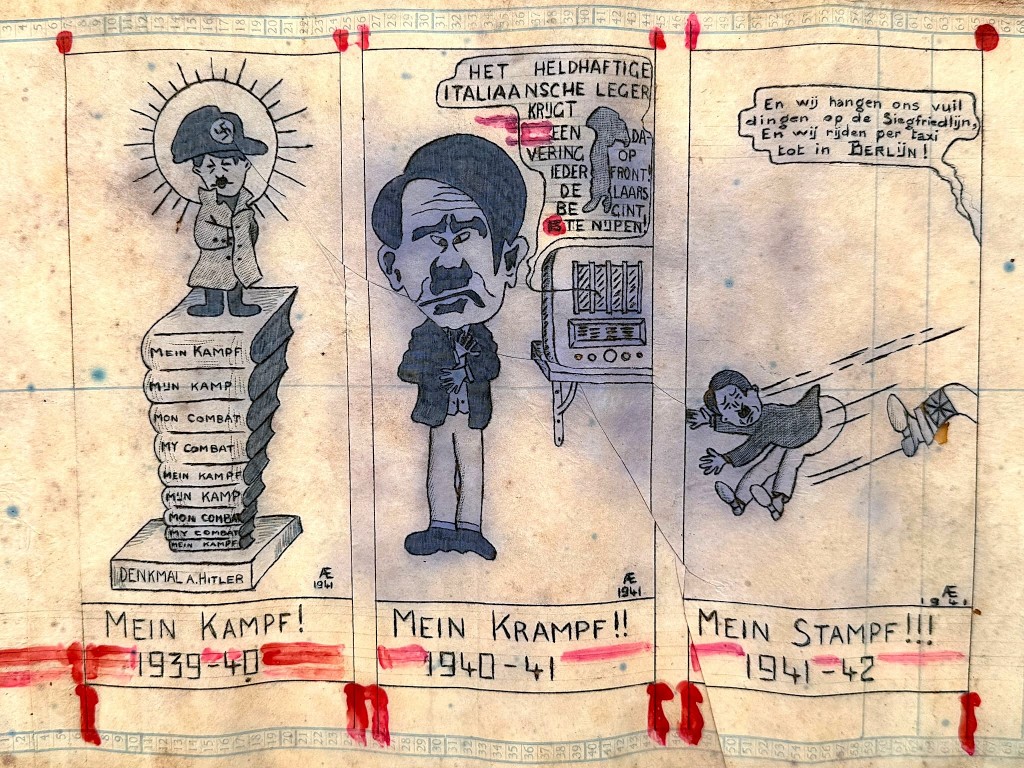 MEIN KAMPF
MIJN KAMP
MON COMBAT
MY COMBAT
MEIN KAMPF
MIJN KAMP
MON COMBAT
MY COMBAT
MEIN KAMPF
DENKMAL A. HITLER
Æ
1941
MEIN KAMPF!
1939-40
HET HELDHAFTIGE
ITALIAANSCHE LEGER
KRIJGT
EEN DA-
VERING OP
IEDER FRONT!
DE LAARS
BEGINT,
TE NIJPEN!
Æ
1941
MEIN KRAMPF!!
1940-41
En wij hangen ons vuil
dingen op de Siegfriedlijn,
En wij rijden per taxi
tot in BERLIJN!
Æ
1941
MEIN STAMPF!!!
1941-42